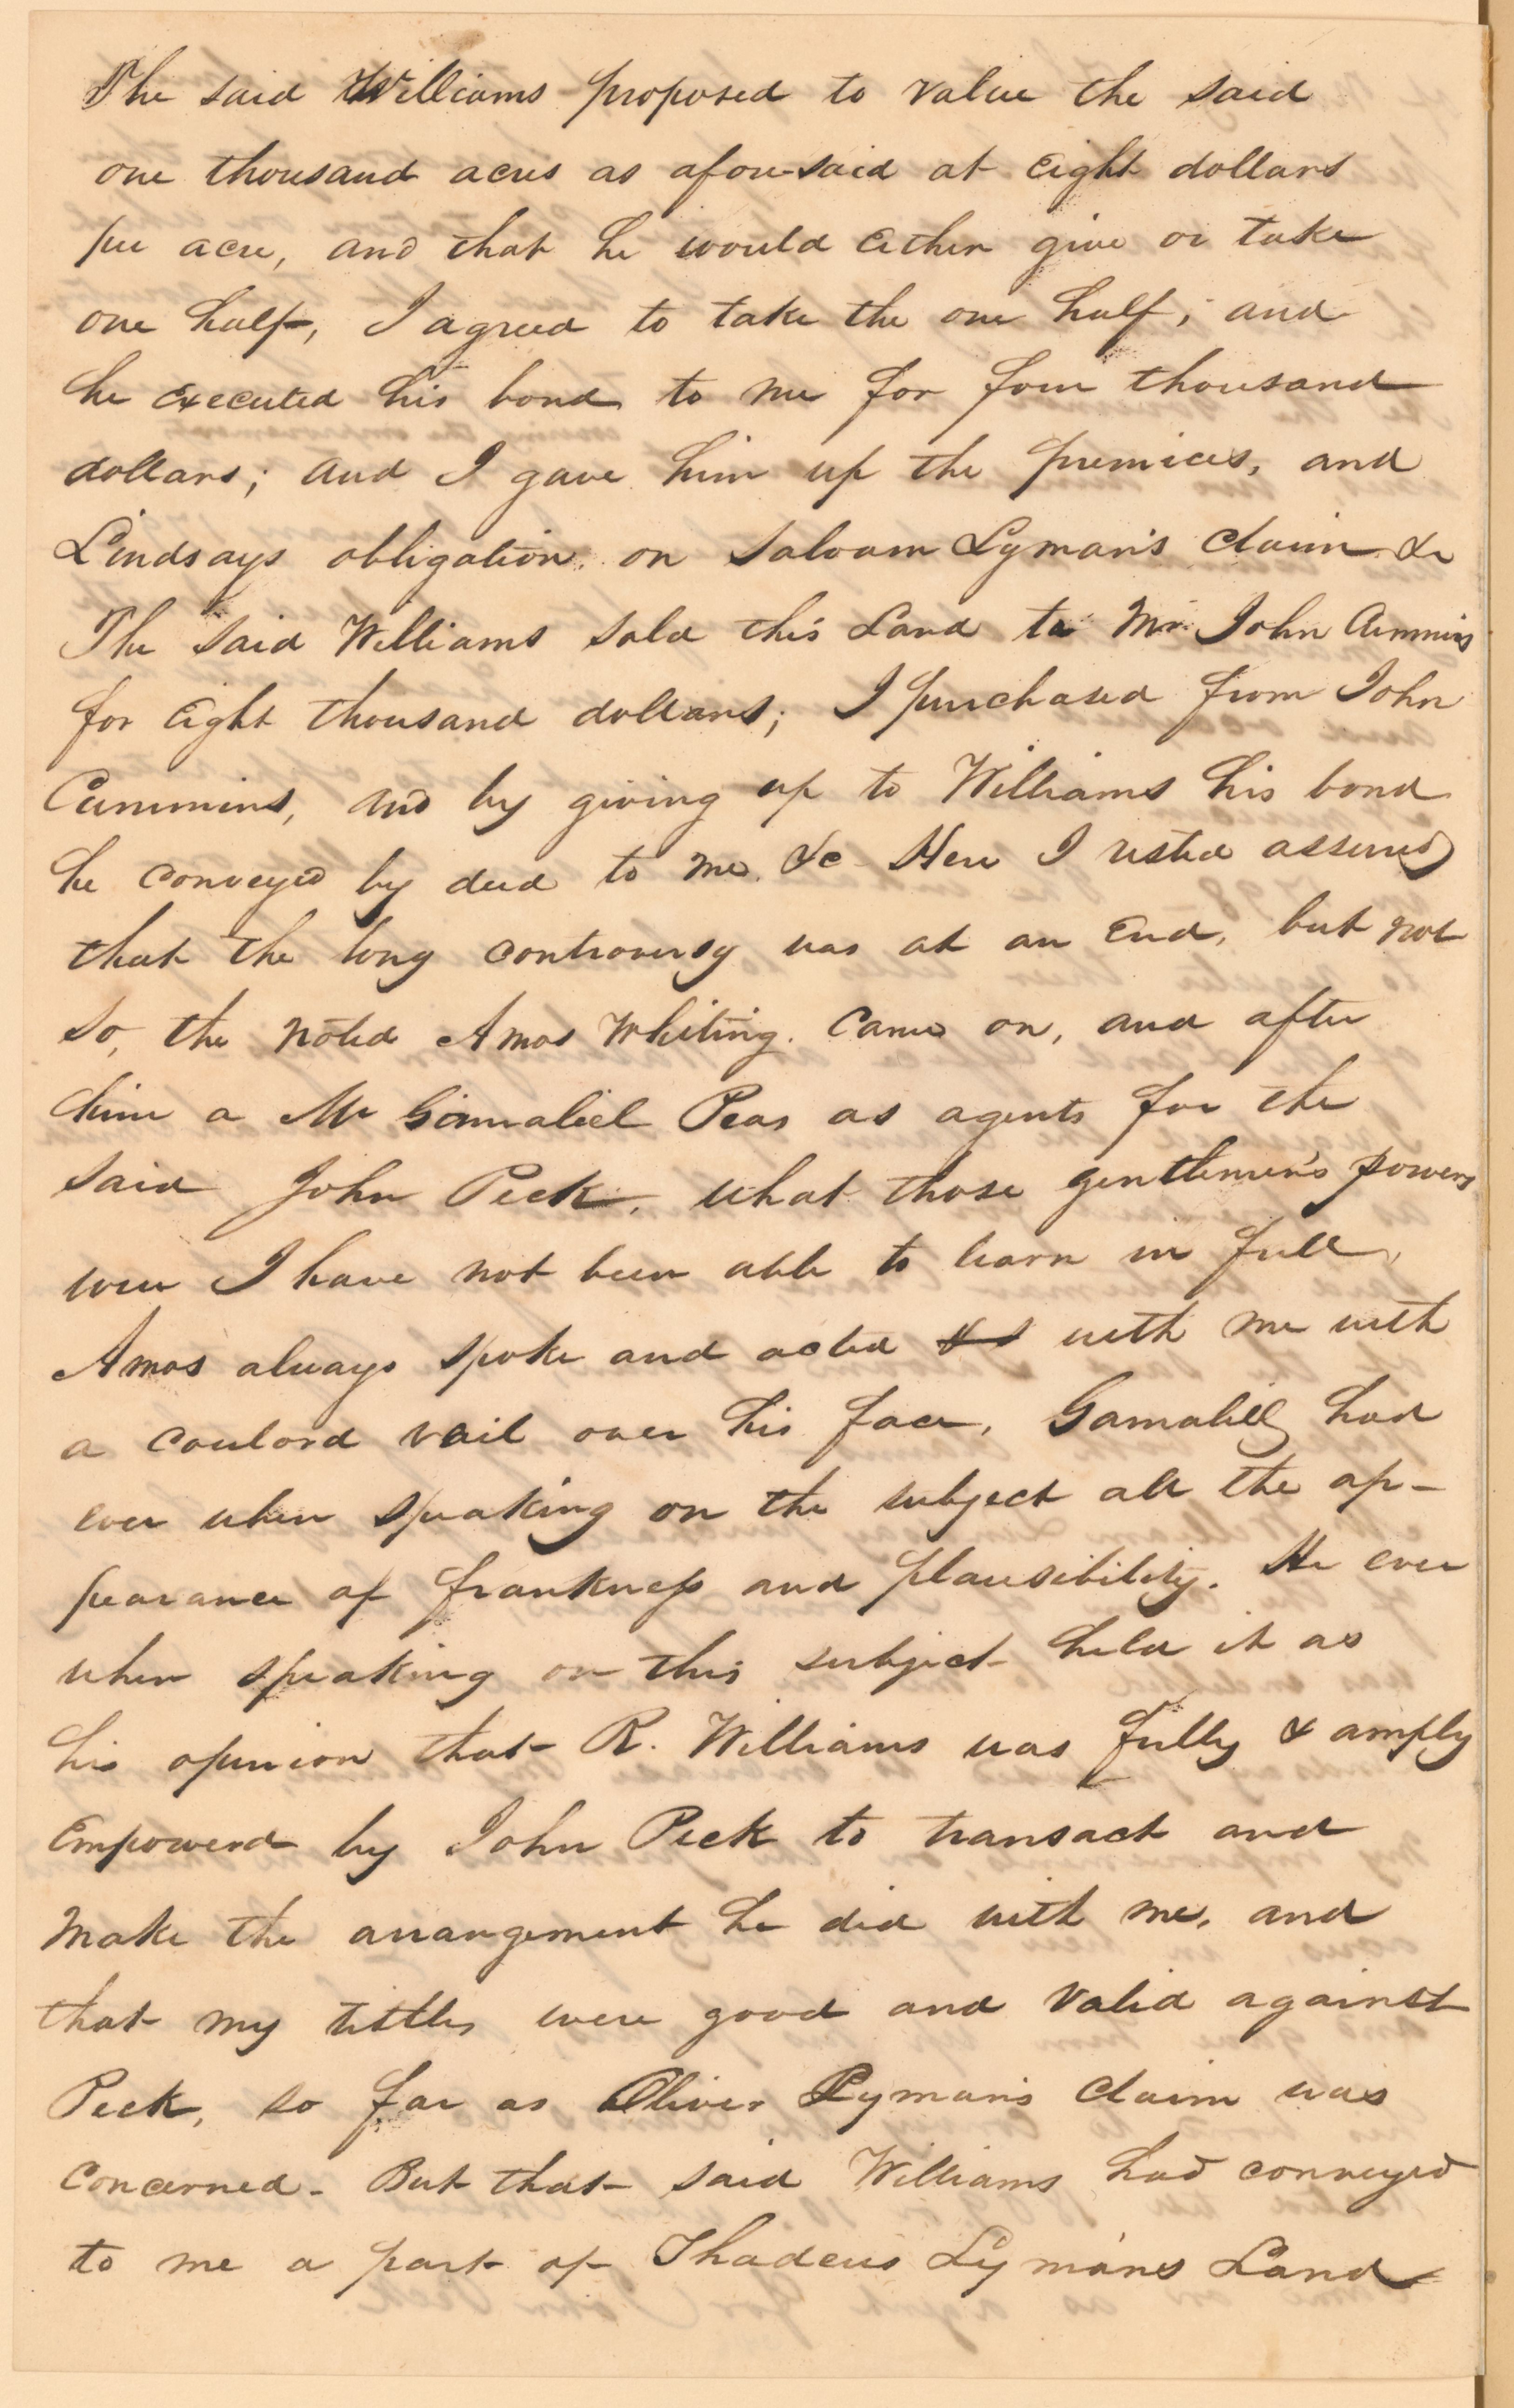 The said Williams proposed to value the said
one thousand acres as aforesaid at Eight dollars
per acre, and that he would Either give or take
one half, I agreed to take the one half; and
he Executed his bond to me for four thousand
dollars; and I gave him up the premices, and
Lindsays obligation on Salvam Lyman's Claim &c
The said Williams sold this Land to Mr. John Cummins
for Eight thousand dollars; I purchased from John
Cummins, and by giving up to Williams his bond
he conveyed by deed to me. &c Here I rested assured
that the long controversy was at an End, but not
so, the noted Amos Whiting. Came on, and after
him a Mr Gamaliel Peas as agents for the
said John Peck, what those gentlemen's powers
were I have not been able to learn in full,
Amos always spoke and acted with me with
a coulord vail over his face, Gamaliel had
ever when speaking on the subject all the ap-
pearance of frankness and plausibility. He ever
when speaking on this subject held it as
his opinion that R. Williams was fully & amply
Empowerd by John Peck to transact and
make the arrangement he did with me, and
that my tittles were good and valid against
Peck, so far as Oliver Lyman's Claim was
Concerned - But that said Williams had conveyed
to me a part of Thadeus Lyman's Land